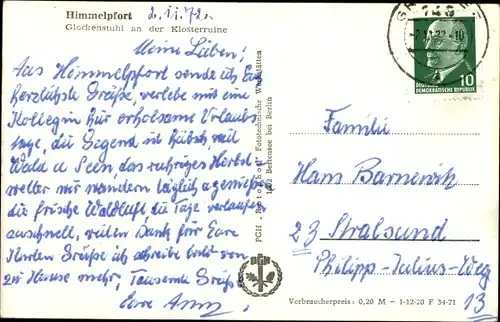 Himmelpfort 2.11.72.
Glockenstuhl an der Klosterruine
Meine Lieben!
Aus Himmelpfort sende ich Euch
herzlichste Grüße, verlebe mit eine
Kollegin hier erholsame Urlaubs
tage, die Gegend ist hübsch viel
Wald u Seen, das ruhige Herbst
wetter wir wandern täglich u genießen
die frische Waldluft, die Tage verlaufen
zu schnell, vielen Dank für Eure
Karten Grüße ich schreibe bald von
zu Hause mehr, Tausende Grüße
Eure Anny
PGH - Rotophot - Fototechnische Werkstätten
Bestensee bei Berlin
PGH
2.11.72-10
DEUTSCHE
DEMOKRATISCHE REPUBLIK
10
Familie
Hans Barnewitz
23 Stralsund
Philipp-Julius-Weg
13
Verbraucherpreis: 0,20 M - 1-12-20 F 34-71